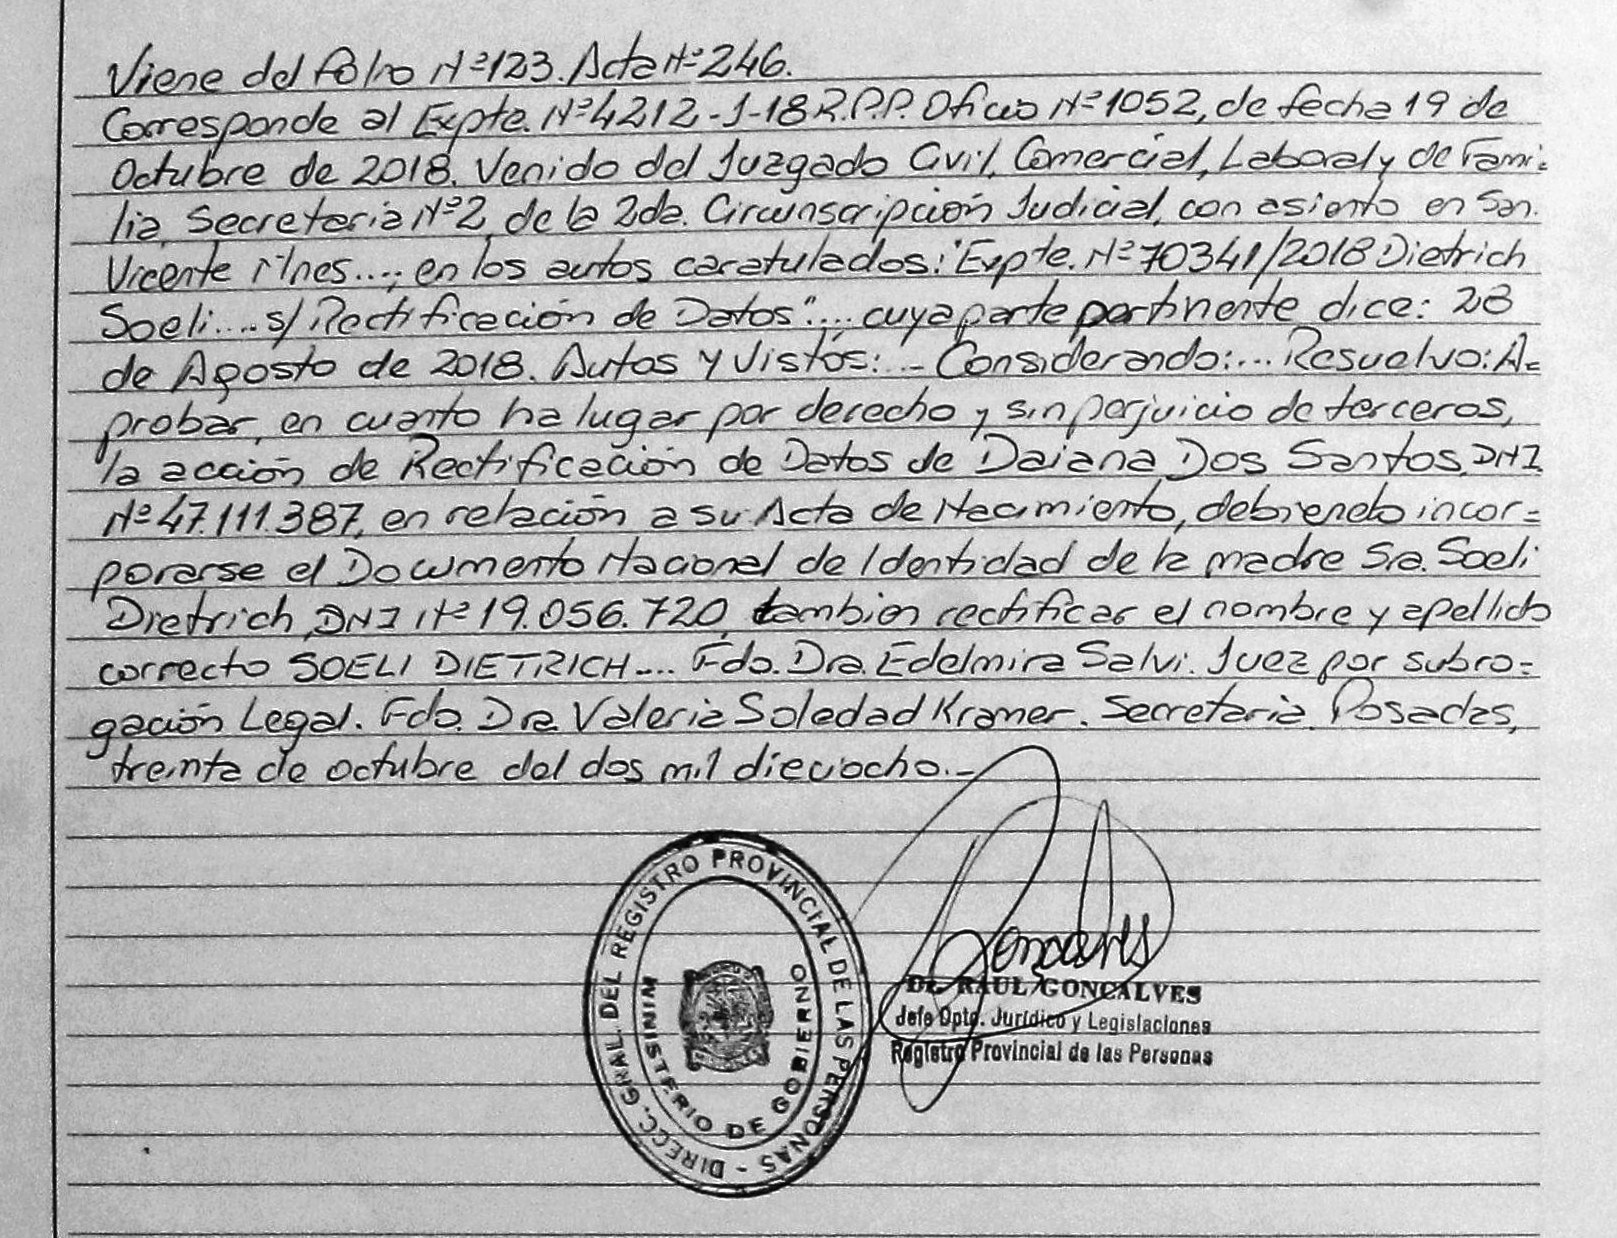 Viene del folio Nº123. Acta Nº246.
Corresponde al Expte. Nº4212-J-18 R.P.P. Oficio Nº1052, de fecha 19 de
Octubre de 2018. Venido del Juzgado Civil, Comercial, Laboral y de Fami=
lia, Secretaria Nº2, de la 2da. Circunscripción Judicial, con asiento en San.
Vicente Mnes...; en los autos caratulados: "Expte. Nº70341/2018 Dietrich
Soeli.... s/ Rectificación de Datos"...; cuya parte pertinente dice: 28
de Agosto de 2018. Autos y Vistos:.- Considerando:... Resuelvo: A=
probar, en cuanto ha lugar por derecho y sin perjuicio de terceros,
la acción de Rectificación de Datos de Daiana Dos Santos, DNI
Nº47.111.387, en relación a su Acta de Nacimiento, debiendo incor=
porarse el Documento Nacional de Identidad de la madre Sra. Soeli
Dietrich, DNI Nº19.056.720, tambien rectificar el nombre y apellido
correcto SOELI DIETRICH.... Fdo. Dra. Edelmira Salvi. Juez por subro=
gación Legal. Fdo. Dra. Valeria Soledad Kramer. Secretaria. Posadas,
treinta de octubre del dos mil dieciocho.-
DIRECC. GRAL. DEL REGISTRO PROVINCIAL DE LAS PERSONAS -
MINISTERIO DE GOBIERNO
Goncalves
Dr. RAUL GONCALVES
Jefe Dpto. Jurídico y Legislaciones
Registro Provincial de las Personas